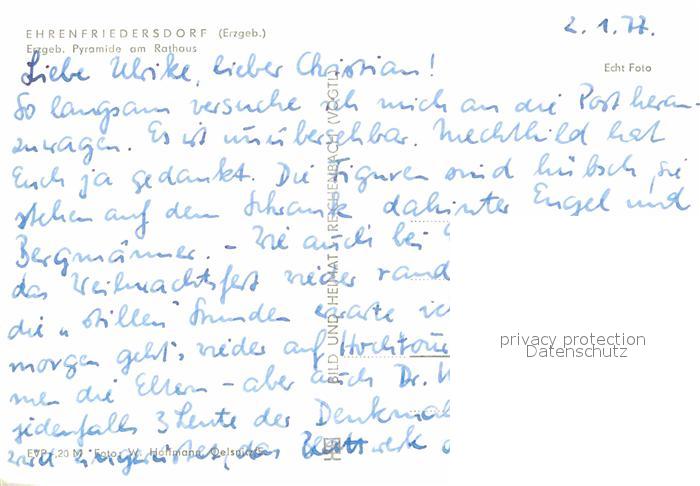 EHRENFRIEDERSDORF (Erzgeb.)
Erzgeb. Pyramide am Rathaus
2.1.77.
Echt Foto
Liebe Ulrike, lieber Christian!
So langsam versuche ich mich an die Post heran-
zuwagen. Es ist unübersehbar. Mechthild hat
Euch ja gedankt. Die Figuren sind hübsch, sie
stehen auf dem Schrank dahinter Engel und
Bergmänner. - Wie auch bei
das Weihnachtsfest wieder rand
die "stillen" Stunden warte ich
morgen geht's wieder auf Hochtour
men die Eltern - aber auch Dr.
jedenfalls 3 Leute der Denkmal
wird das Blattwerk
BILD UND HEIMAT REICHENBACH (VOGTL)
EVP -,20 M Foto: W. Hoffmann, Oelsnitz/E.
privacy protection
Datenschutz